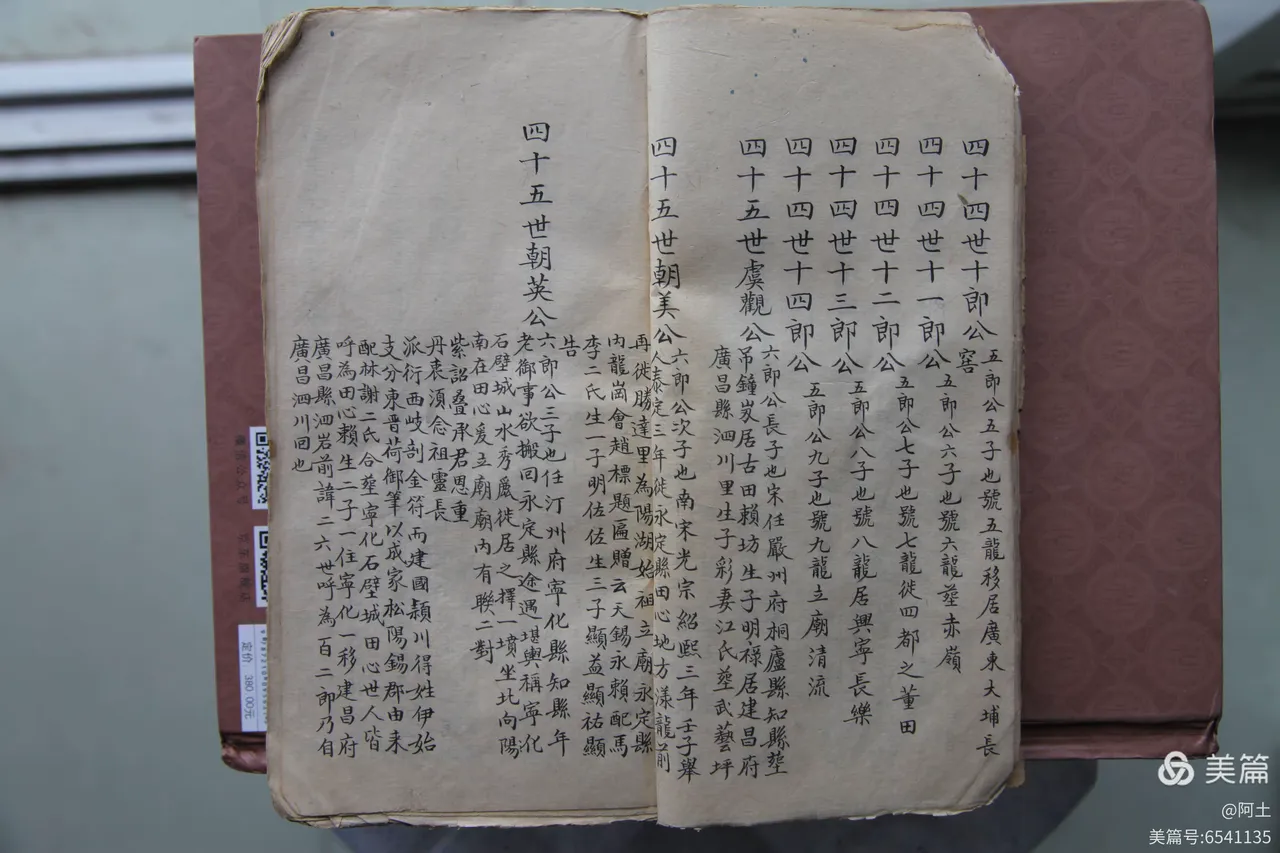 四十四世十郎公
五郎公五子也號五龍移居廣東大埔長
窖
四十四世十一郎公
五郎公六子也號六龍塟赤嶺
四十四世十二郎公
五郎公七子也號七龍徙四都之董田
四十四世十三郎公
五郎公八子也號八龍居興寧長樂
四十四世十四郎公
五郎公九子也號九龍立廟清流
四十五世虞觀公
六郎公長子也宋任嚴州府桐廬縣知縣塟
吊鐘岌居古田賴坊生子明祿居建昌府
廣昌縣泗川里生子彩妻江氏塟武藝坪
四十五世朝美公
六郎公次子也南宋光宗紹熙三年壬子舉
人泰定三年徙永定縣田心地方漾龍前
再徙勝達里為陽湖始祖立廟永定縣
內龍崗會趙標題匾贈云天錫永賴配馬
李二氏生一子明佐佐生三子顯益顯祐顯
告
四十五世朝英公
六郎公三子也任汀州府寧化縣知縣年
老御事欲搬回永定縣途遇堪輿稱寧化
石壁城山水秀麗徙居之擇一墳坐北向陽
南在田心爰立廟廟內有聯二對
紫詔叠承君恩重
丹衷湏念祖靈長
派衍西岐剖金符而建國頴川得姓伊始
支分東晋荷御筆以成家松陽錫郡由来
配林謝二氏合塟寧化石壁城田心世人皆
呼為田心賴生二子一住寧化一移建昌府
廣昌縣泗岩前諱二六世呼為百二郎乃自
廣昌泗川回也
定价 380.00元
美篇
@阿土
美篇号:6541135